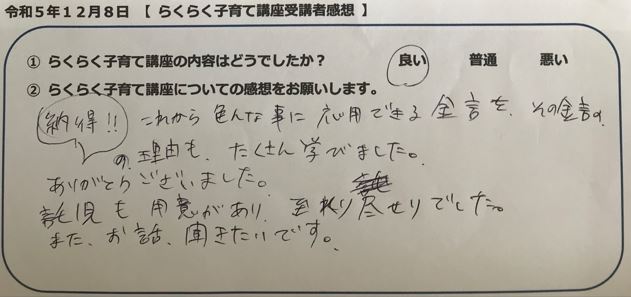 令和５年１２月８日 【 らくらく子育て講座受講者感想 】
① らくらく子育て講座の内容はどうでしたか？ 良い 普通 悪い
② らくらく子育て講座についての感想をお願いします。
納得!! これから色んな事に応用できる金言を、その金言の
の理由も、たくさん学びました。
ありがとうございました。
託児も用意があり、至れり尽せりでした。
また、お話、聞きたいです。